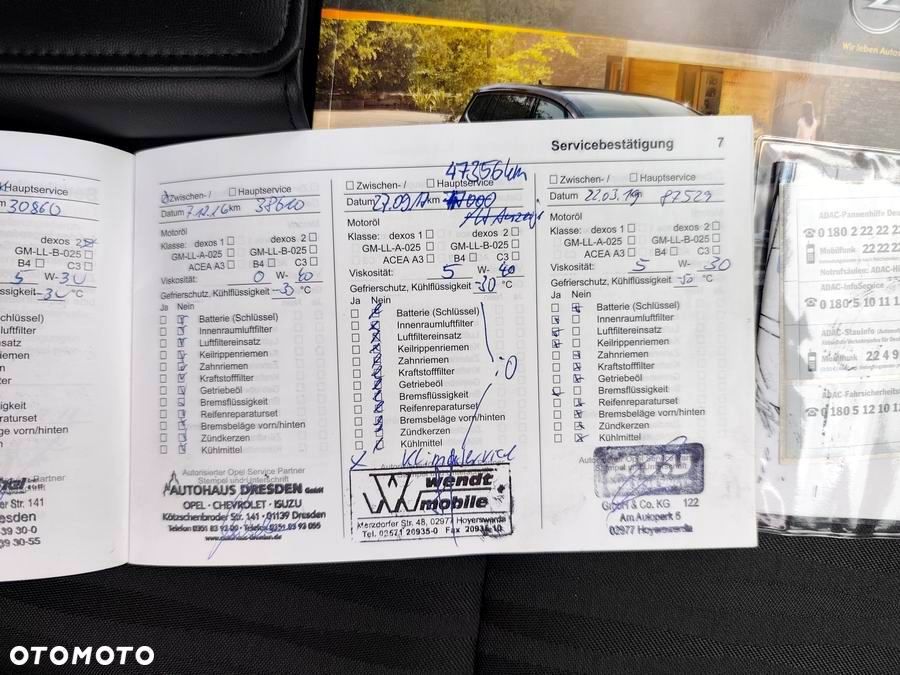 Wir leben Autos
Servicebestätigung 7
Hauptservice
30860
dexos 2
GM-LL-B-025
B4 C3
5 W-30
-30 °C
Zwischen-/ Hauptservice
Datum 7.12.16 km 38610
Motoröl
Klasse: dexos 1 dexos 2
GM-LL-A-025 GM-LL-B-025
ACEA A3 B4 C3
Viskosität: 0 W- 40
Gefrierschutz, Kühlflüssigkeit -30 °C
Ja Nein
Batterie (Schlüssel)
Innenraumluftfilter
Luftfiltereinsatz
Keilrippenriemen
Zahnriemen
Kraftstofffilter
Getriebeöl
Bremsflüssigkeit
Reifenreparaturset
Bremsbeläge vorn/hinten
Zündkerzen
Kühlmittel
Autorisierter Opel Service Partner
Stempel und Unterschrift
AUTOHAUS DRESDEN GmbH
OPEL · CHEVROLET · ISUZU
Kötzschenbroder Str. 141 · 01139 Dresden
47356 km
Zwischen-/ Hauptservice
Datum 27.09.17 km
Motoröl
Klasse: dexos 1 dexos 2
GM-LL-A-025 GM-LL-B-025
ACEA A3 B4 C3
Viskosität: 5 W- 40
Gefrierschutz, Kühlflüssigkeit -30 °C
Ja Nein
Batterie (Schlüssel)
Innenraumluftfilter
Luftfiltereinsatz
Keilrippenriemen
Zahnriemen
Kraftstofffilter
Getriebeöl
Bremsflüssigkeit
Reifenreparaturset
Bremsbeläge vorn/hinten
Zündkerzen
Kühlmittel
x Klimaservice
wendt
mobile
Merzdorfer Str. 48, 02977 Hoyerswerda
Tel. 03571 20935-0 Fax 20935-10
Zwischen-/ Hauptservice
Datum 22.03.19 87529
Motoröl
Klasse: dexos 1 dexos 2
GM-LL-A-025 GM-LL-B-025
ACEA A3 B4 C3
Viskosität: 5 W- 30
Gefrierschutz, Kühlflüssigkeit °C
Ja Nein
Batterie (Schlüssel)
Innenraumluftfilter
Luftfiltereinsatz
Keilrippenriemen
Zahnriemen
Kraftstofffilter
Getriebeöl
Bremsflüssigkeit
Reifenreparaturset
Bremsbeläge vorn/hinten
Zündkerzen
Kühlmittel
GmbH & Co. KG 122
Am Autopark 5
02977 Hoyerswerda
ADAC-Pannenhilfe
0 180 2 22 22 22
Mobilfunk 22 22 22
ADAC-InfoService
0 180 5 10 11 1
ADAC-Stauinfo
Mobilfunk 22 4 9
0 180 5 12 10 1
OTOMOTO